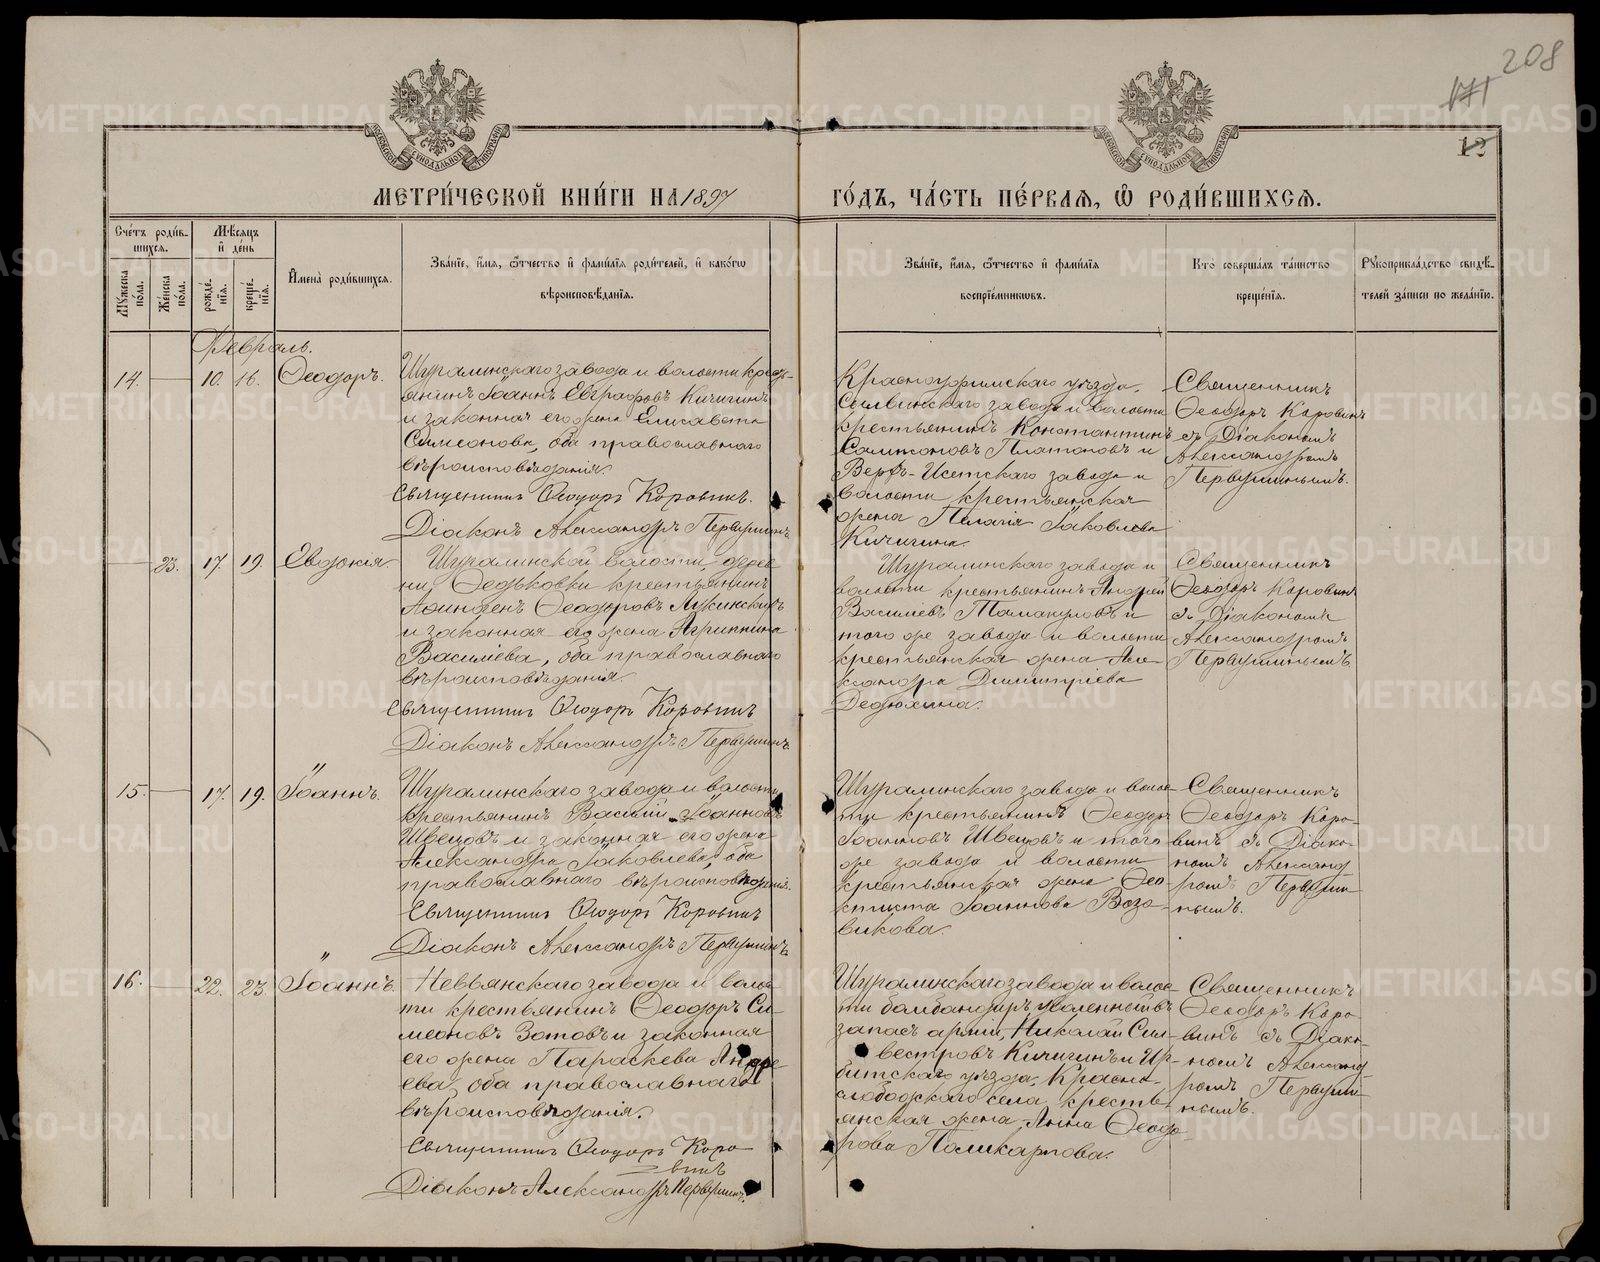 208
171
13
МЕТРИ́ЧЕСКОЙ КНИ́ГИ НА 1897 ГО́ДЪ, ЧА́СТЬ ПЕ́РВАЯ, Ѿ РОДИ́ВШИХСЯ.
Сче́тъ роди́в-
шихся.
Мѣ́сяцъ
и҆ де́нь
Му́жеска
по́ла.
Же́нска
по́ла.
рожде́-
нїя.
креще́-
нїя.
И҆мена̀ роди́вшихся.
Зва́нїе, и҆́мя, ѻ҆́тчество и҆ фами́лїя роди́телей, и҆ како́гѡ
вѣроисповѣ́данїя.
Зва́нїе, и҆́мя, ѻ҆́тчество и҆ фами́лїя
воспрїе́мниковъ.
Кто̀ соверша́лъ та́инство
креще́нїя.
Рꙋкоприкла́дство свидѣ́-
телей за́писи по жела́нїю.
Февраль.
14. 10. 16. Ѳеодоръ.
Шуралинскаго завода и волости кресть-
янинъ Іоаннъ Евграфовъ Кичигинъ
и законная его жена Елисавета
Симеонова, оба православнаго
вѣроисповѣданія.
Священникъ Ѳеодоръ Коровинъ.
Діаконъ Александръ Первушинъ
Красноуфимскаго уѣзда,
Сылвинскаго завода и волости
крестьянинъ Константинъ
Платоновъ и
Верхъ-Исетскаго завода и
волости крестьянская
жена Пелагія Іаковлева
Кичигина.
Священникъ
Ѳеодоръ Коровинъ
съ Діакономъ
Александромъ
Первушинымъ.
23. 17. 19. Евдокія.
Шуралинской волости, дерев
ни Ѳедьковки крестьянинъ
Ѳеодоровъ
и законная его жена Агриппина
Васильева, оба православнаго
вѣроисповѣданія.
Священникъ Ѳеодоръ Коровинъ
Діаконъ Александръ Первушинъ
Шуралинскаго завода и
волости крестьянинъ Андрей
Васильевъ Толмакуловъ и
того же завода и волости
крестьянская жена Але-
ксандра Димитріева
Дедюхина.
Священникъ
Ѳеодоръ Коровинъ
съ Діакономъ
Александромъ
Первушинымъ
15. 17. 19. Іоаннъ.
Шуралинскаго завода и волости
крестьянинъ Василій Іоанновъ
Швецовъ и законная его жена
Александра Іаковлева, оба
православнаго вѣроисповѣданія.
Священникъ Ѳеодоръ Коровинъ
Діаконъ Александръ Первушинъ
Шуралинскаго завода и волос-
ти крестьянинъ Ѳеодоръ
Іоанновъ Швецовъ и того
же завода и волости
крестьянская жена Ѳео-
ктиста Іоаннова Возо-
викова.
Священникъ
Ѳеодоръ Коро-
винъ съ Діако-
номъ Александ-
ромъ Первуши-
нымъ.
16. 22. 23. Іоаннъ.
Невьянскаго завода и волос-
ти крестьянинъ Ѳеодоръ Си-
меоновъ Зотовъ и законная
его жена Параскева Андре
ева, оба православнаго
вѣроисповѣданія.
Священникъ Ѳеодоръ Коро-
винъ
Діаконъ Александръ Первушинъ.
Шуралинскаго завода и волос-
ти бомбандиръ, уволенный въ
запасъ арміи, Николай Сил-
вестровъ Кичигинъ и Ир-
битскаго уѣзда, Красно-
слободскаго села, кресть-
янская жена, Анна Ѳеодо-
рова Поликарпова.
Священникъ
Ѳеодоръ Коро-
винъ съ Діако-
номъ Александ-
ромъ Первуши-
нымъ.
METRIKI.GASO-URAL.RU